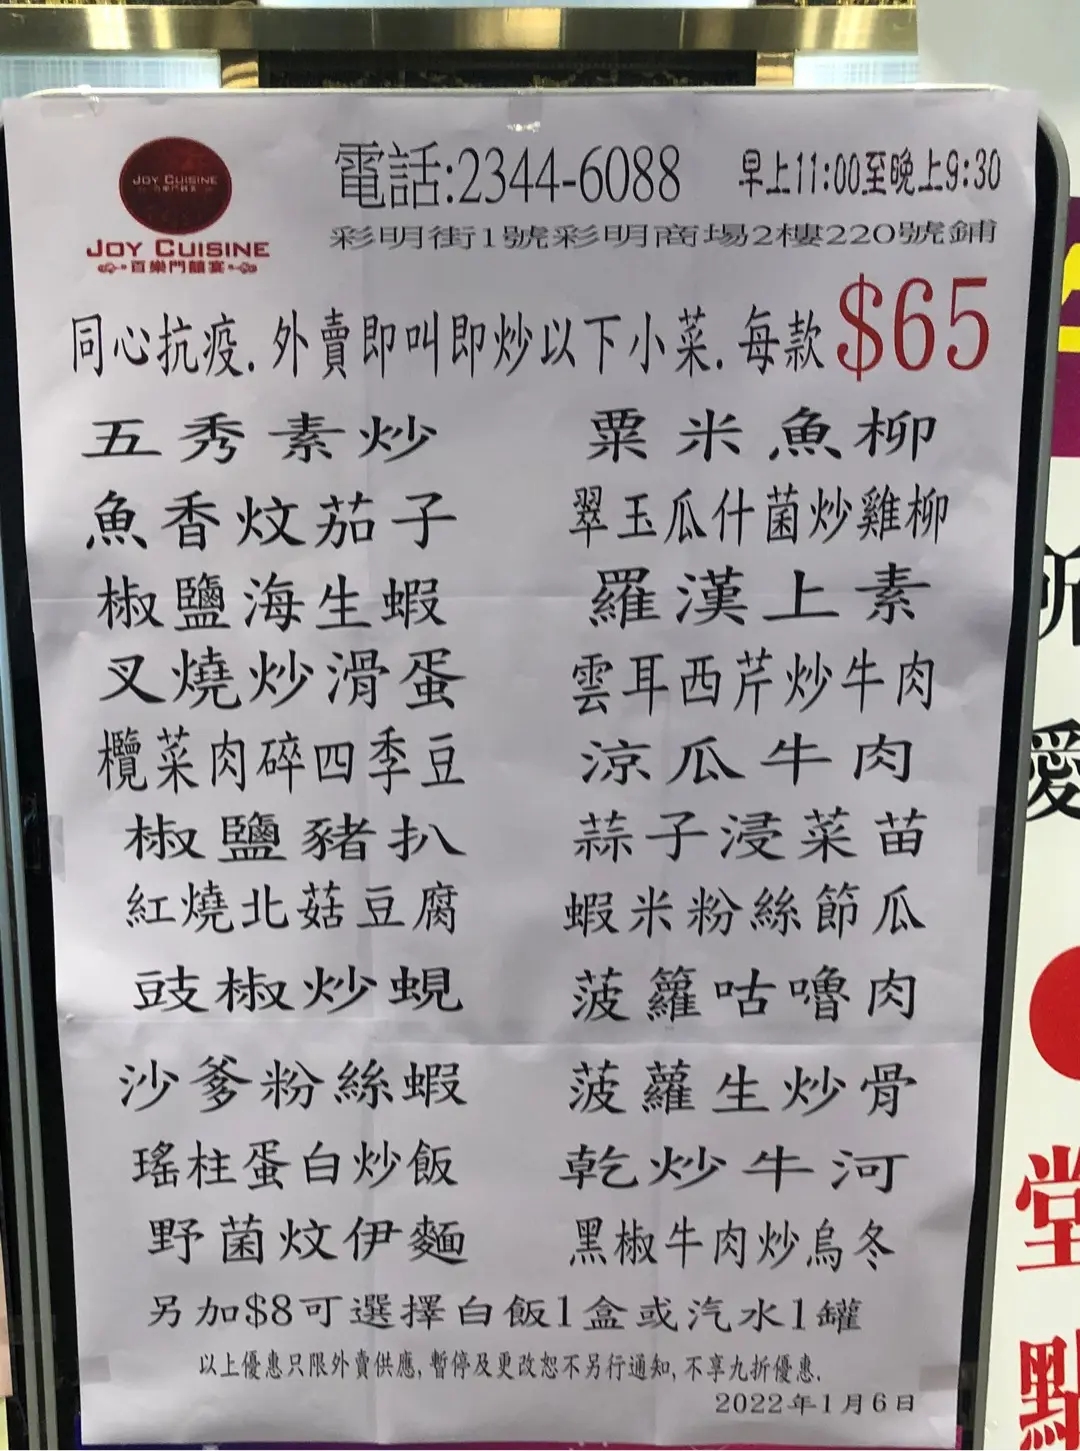 JOY CUISINE
JOY CUISINE
百樂門囍宴
電話:2344-6088 早上11:00至晚上9:30
彩明街1號彩明商場2樓220號鋪
同心抗疫.外賣即叫即炒以下小菜.每款$65
五秀素炒 粟米魚柳
魚香炆茄子 翠玉瓜什菌炒雞柳
椒鹽海生蝦 羅漢上素
叉燒炒滑蛋 雲耳西芹炒牛肉
欖菜肉碎四季豆 涼瓜牛肉
椒鹽豬扒 蒜子浸菜苗
紅燒北菇豆腐 蝦米粉絲節瓜
豉椒炒蜆 菠籮咕嚕肉
沙爹粉絲蝦 菠蘿生炒骨
瑤柱蛋白炒飯 乾炒牛河
野菌炆伊麵 黑椒牛肉炒烏冬
另加$8可選擇白飯1盒或汽水1罐
以上優惠只限外賣供應,暫停及更改恕不另行通知,不享九折優惠.
2022年1月6日
愛
堂
點